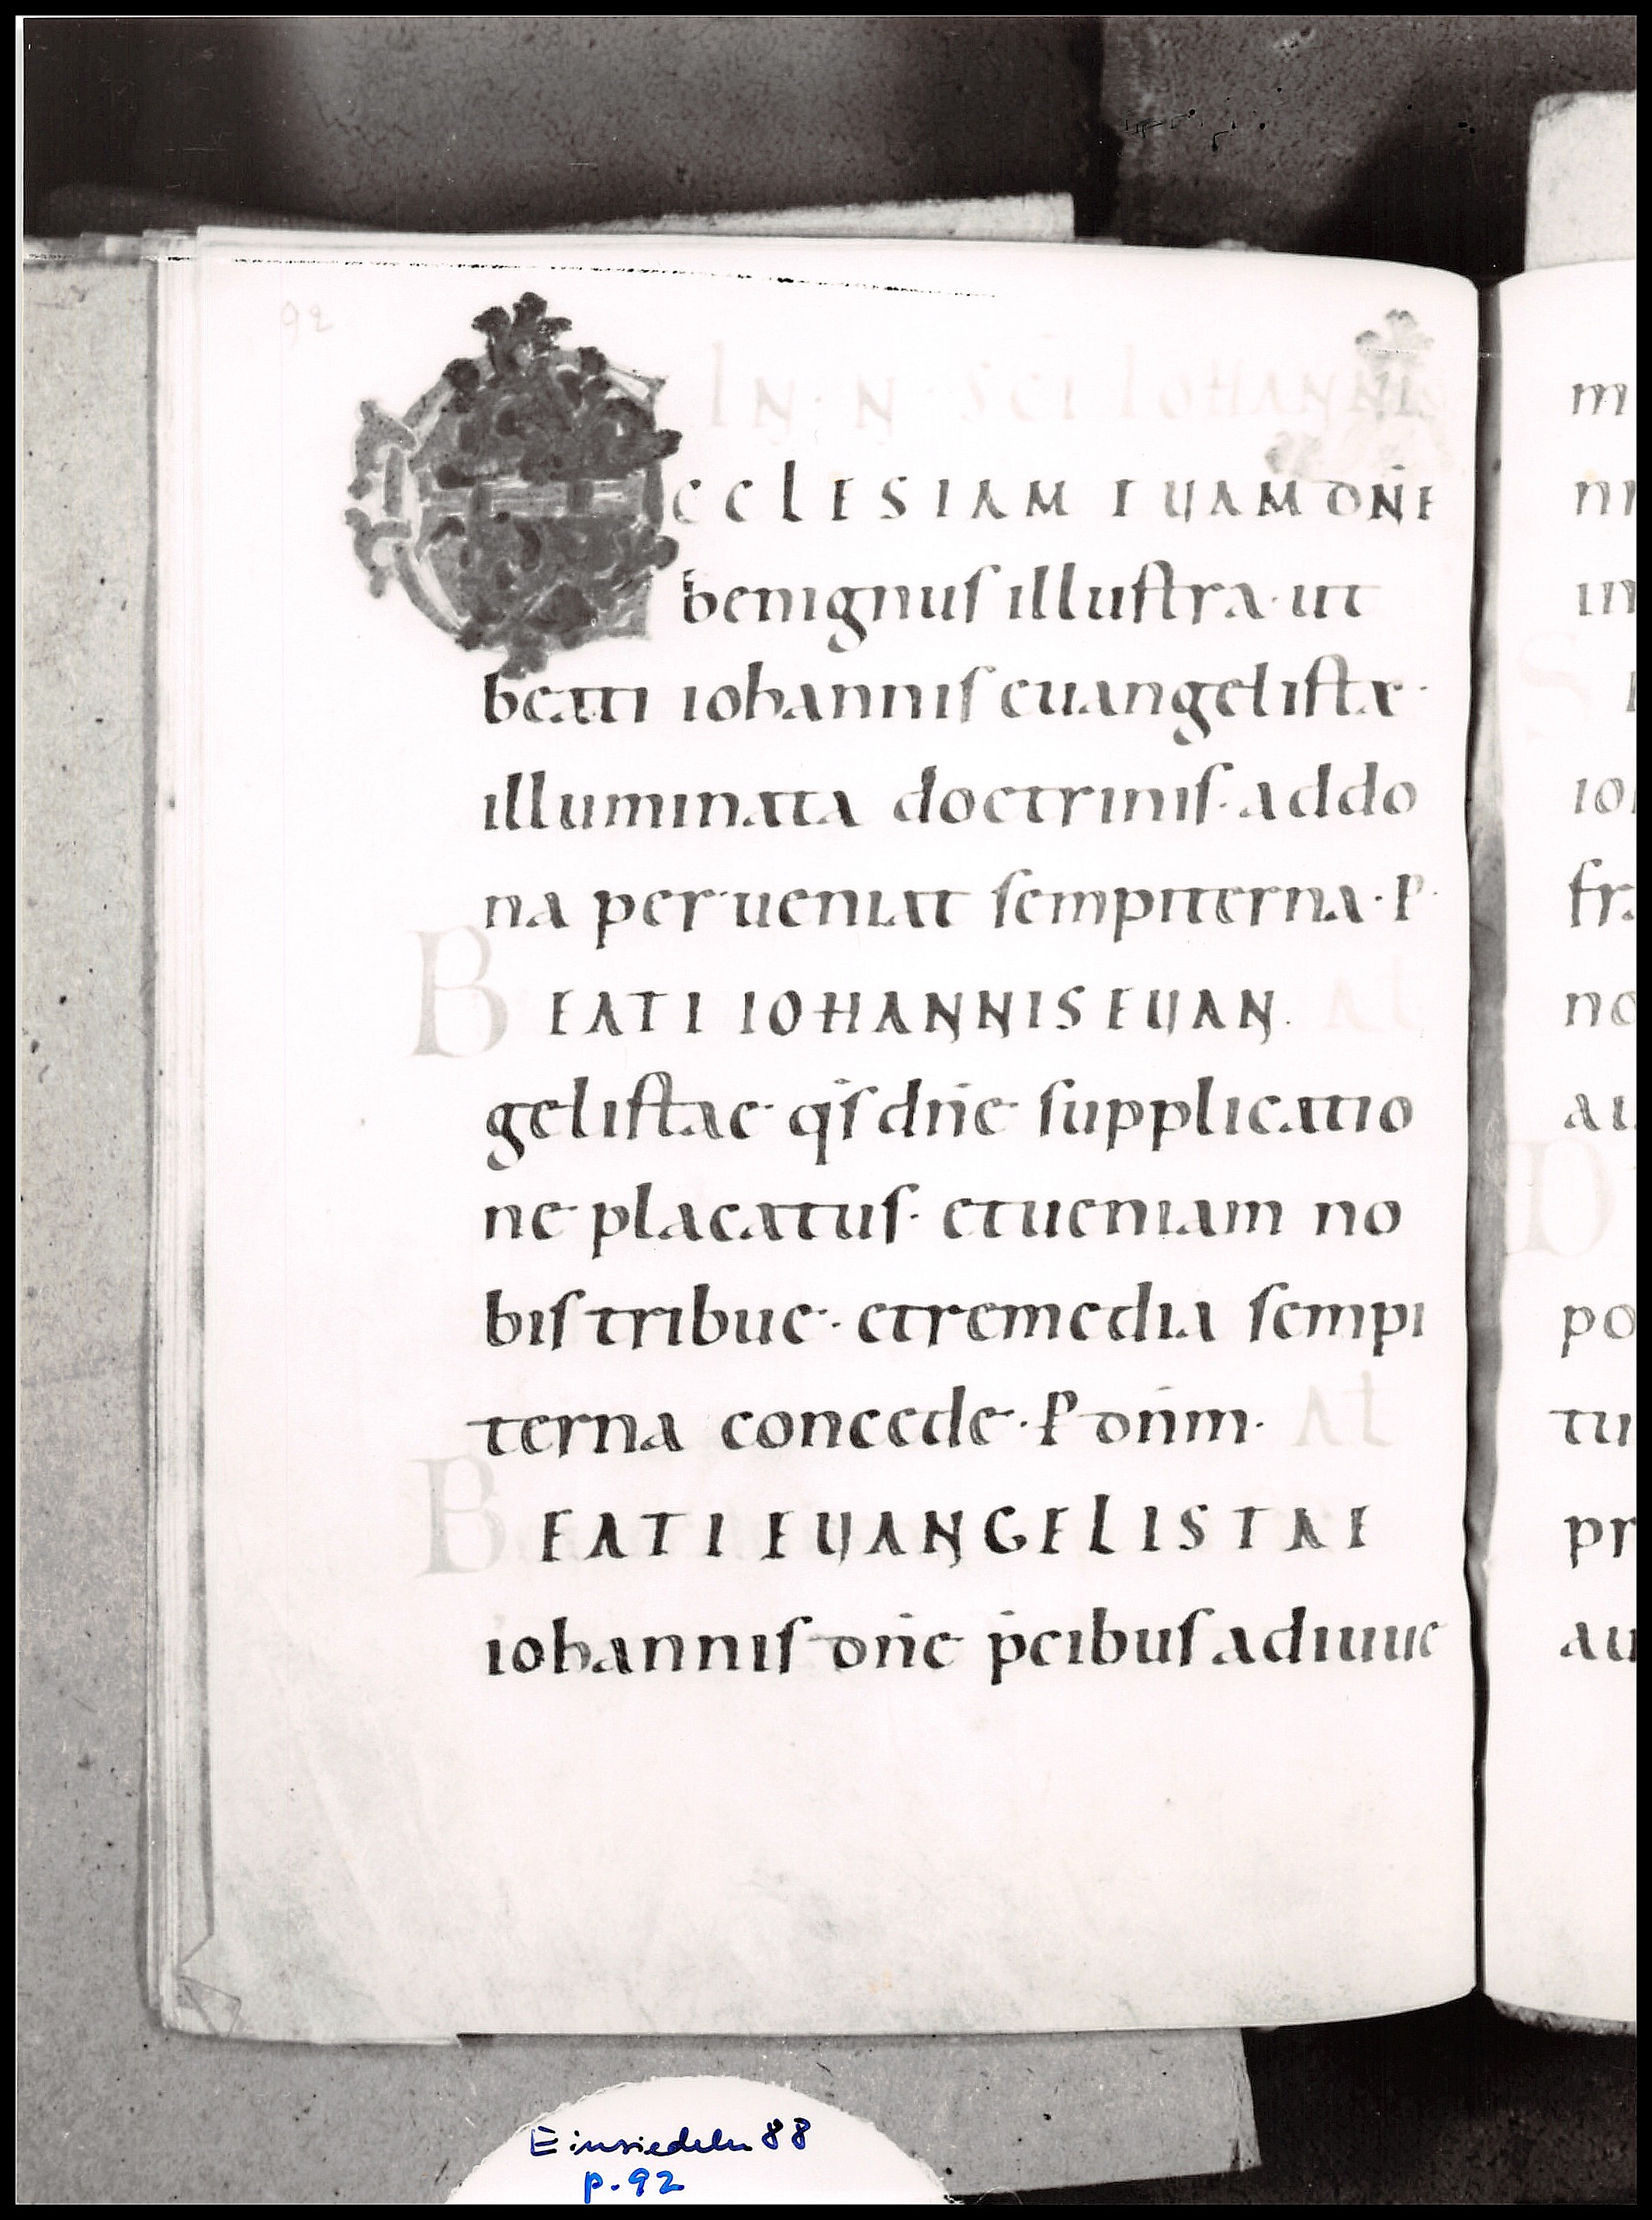 92
IN · N · SCI IOHANNI
ECCLESIAM TUAM DN̄E
benignus illustra · ut
beati iohannis euangelistę ·
illuminata doctrinis · addo
na perueniat sempiterna · P ·
BEATI IOHANNIS EUAN · AL
gelistae · qs̄ dn̄e supplicatio
ne placatus · et ueniam no
bis tribue · et remedia sempi
terna concede · P dn̄m · AL
BEATI EUANGELISTAE
iohannis dn̄e p̄cibus adiuue
m
ni
im
S
io
fr
no
au
D
po
tu
pr
au
Einsiedeln 88
p. 92